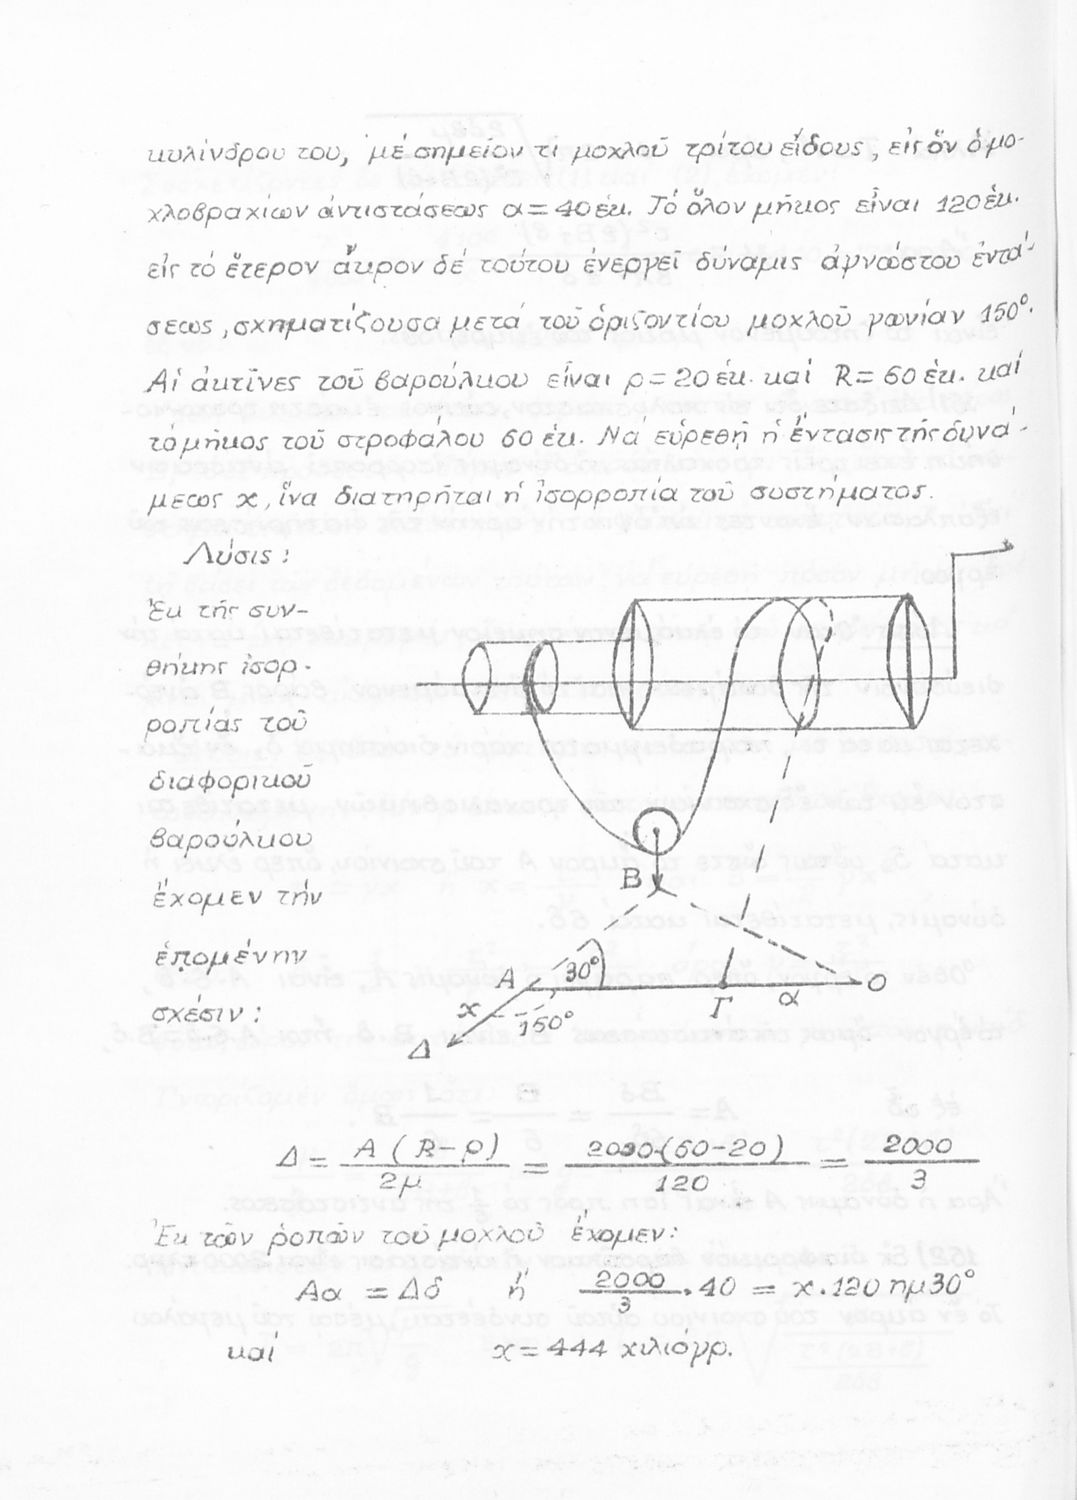 κυλίνδρου του, μέ σημεῖον τι μοχλοῦ τρίτου εἴδους, εἰς ὅν ὁ μο-
χλοβραχίων ἀντιστάσεως α = 40 ἑκ. Τό ὅλον μῆκος εἶναι 120 ἑκ.
εἰς τό ἕτερον ἄκρον δέ τούτου ἐνεργεῖ δύναμις ἀγνώστου ἐντά-
σεως, σχηματίζουσα μετά τοῦ ὁριζοντίου μοχλοῦ γωνίαν 150°.
Αἱ ἀκτῖνες τοῦ βαρούλκου εἶναι ρ = 20 ἑκ. καί R = 60 ἑκ. καί
τό μῆκος τοῦ στροφάλου 60 ἑκ. Νά εὑρεθῇ ἡ ἔντασις τῆς δυνά-
μεως χ, ἵνα διατηρῆται ἡ ἰσορροπία τοῦ συστήματος.
Λύσις:
Ἐκ τῆς συν-
θήκης ἰσορ-
ροπίας τοῦ
διαφορικοῦ
βαρούλκου
ἔχομεν τήν
ἑπομένην
σχέσιν:
Β
Α 30° Γ α Ο
χ 150°
Δ
Δ = Α (R-ρ) / 2μ = 2000·(60-20) / 120 = 2000 / 3
Ἐκ τῶν ῥοπῶν τοῦ μοχλοῦ ἔχομεν:
Αα = Δδ ἤ 2000 / 3 · 40 = χ · 120 ημ30°
καί χ = 444 χιλιόγρ.